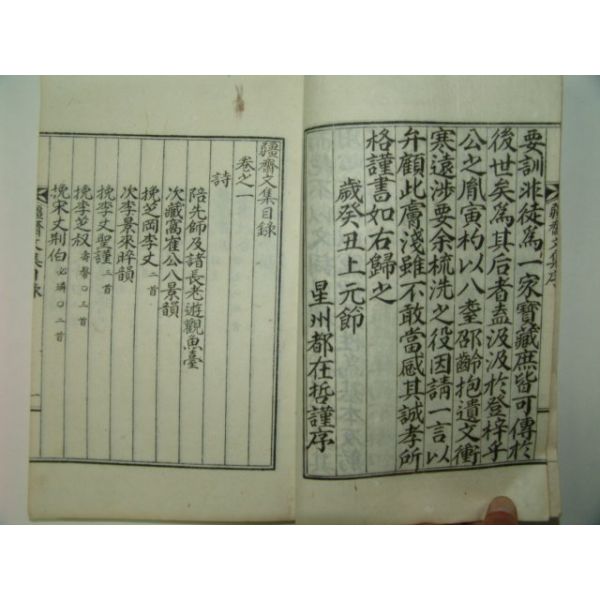 要訓非徒為一家寶藏庶皆可傳於
後世矣為其后者盍汲汲於登梓乎
公之胤寅杓以八耋邵齡抱遺文衝
寒遠涉要余梳洗之役因請一言以
弁顧此膚淺雖不敢當感其誠孝所
格謹書如右歸之
歲癸丑上元節
星州都在哲謹序
疆齋文集序
疆齋文集目錄
卷之一
詩
陪先師及諸長老遊觀魚臺
次藏窩崔公八景韻
挽芝岡李丈 二首
次李景來晬韻
挽李丈聖謹 三首
挽李芝叔 壽馨○三首
挽宋丈荆伯 必璘○二首
疆齋文集目錄
一